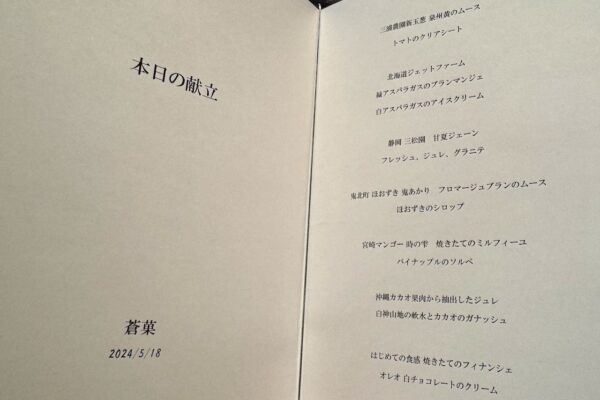 本日の献立
蒼菓
2024/5/18
三浦農園新玉葱 泉州黄のムース
トマトのクリアシート
北海道ジェットファーム
緑アスパラガスのブランマンジェ
白アスパラガスのアイスクリーム
静岡 三松園 甘夏ジェーン
フレッシュ、ジュレ、グラニテ
鬼北町 ほおずき 鬼あかり フロマージュブランのムース
ほおずきのシロップ
宮崎マンゴー 時の雫 焼きたてのミルフィーユ
パイナップルのソルベ
沖縄カカオ果肉から抽出したジュレ
白神山地の軟水とカカオのガナッシュ
はじめての食感 焼きたてのフィナンシェ
オレオ 白チョコレートのクリーム